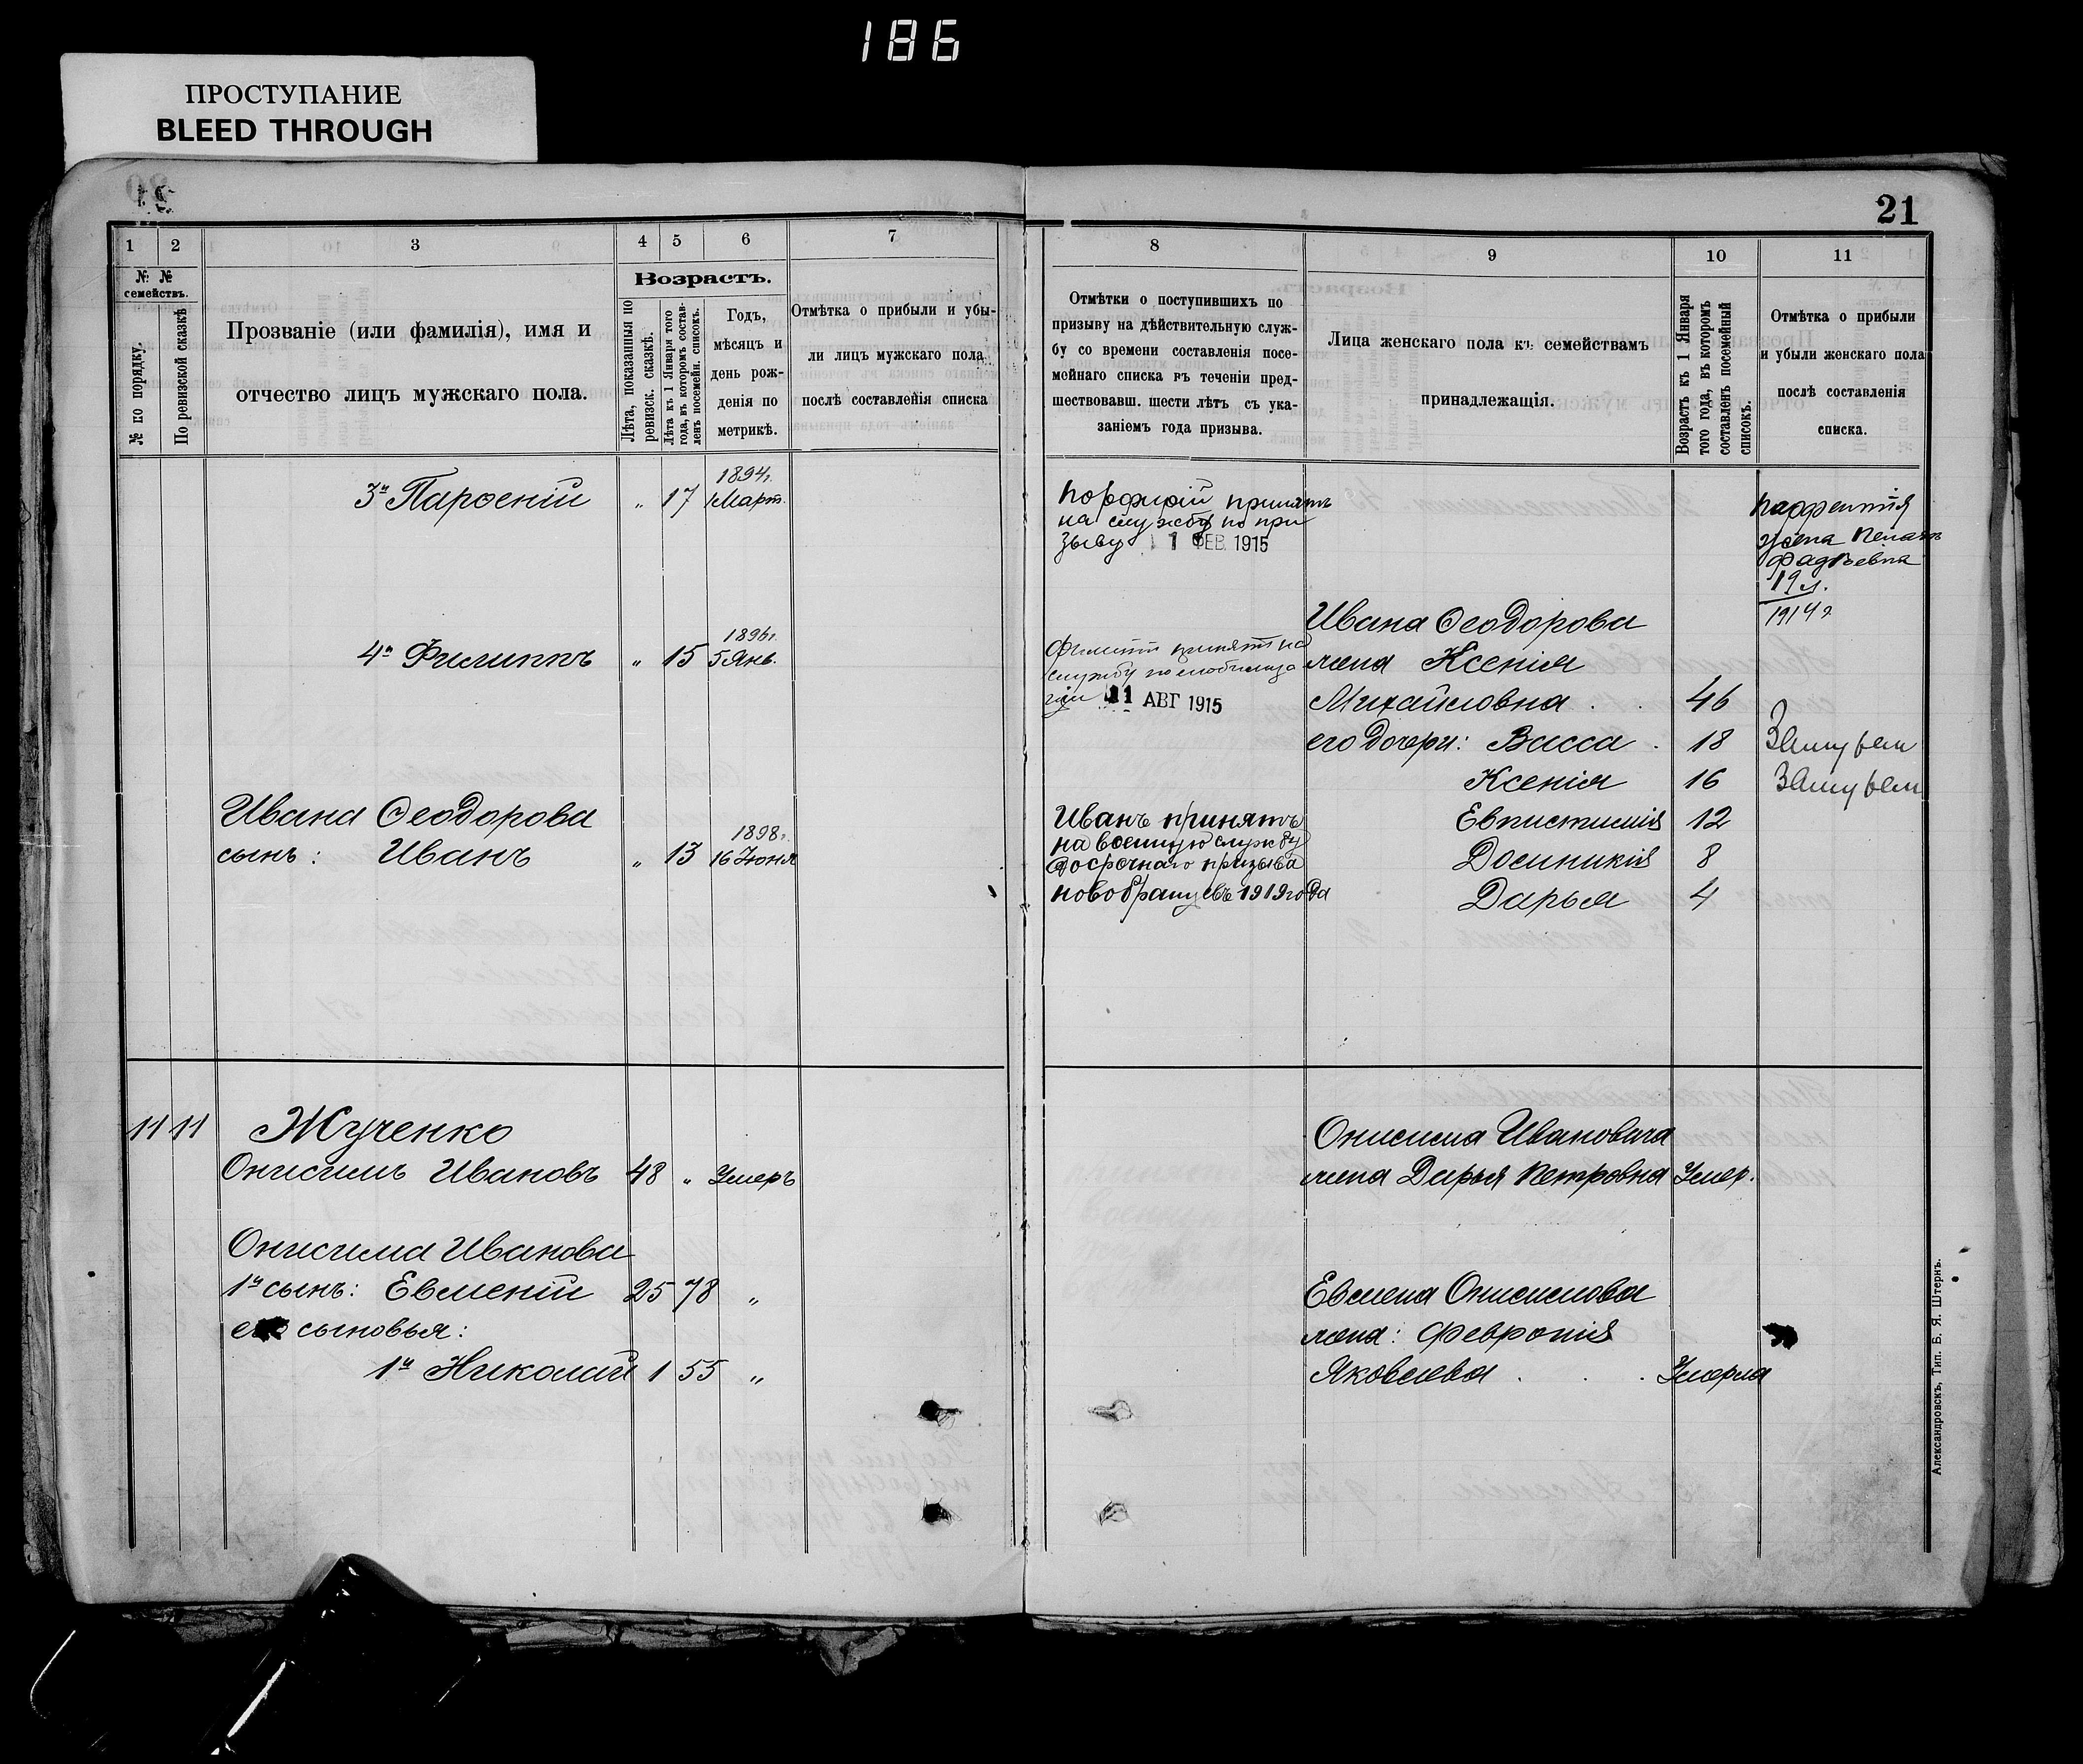 186
ПРОСТУПАНИЕ
BLEED THROUGH
21
1 2 3 4 5 6 7
№ № семействъ.
№ по порядку.
По ревизской сказкѣ
Прозваніе (или фамилія), имя и
отчество лицъ мужскаго пола.
Возрастъ.
Лѣта, показанныя по
ревизск. сказкѣ.
Лѣта къ 1 Января того
года, въ которомъ состав-
ленъ посемейн. списокъ.
Годъ,
мѣсяцъ и
день рож-
денія по
метрикѣ.
Отмѣтка о прибыли и убы-
ли лицъ мужскаго пола
послѣ составленія списка
3й Парѳеній „ 17 1894г.
1 Март.
4й Филиппъ „ 15 1896г.
5 Янв.
Ивана Ѳеодорова
сынъ: Иванъ „ 13 1898г.
16 Іюня
11 11 Жученко
Онисимъ Ивановъ 48 „ Умеръ
Онисима Иванова
1й сынъ: Евменій 25 78 „
его сыновья:
1й Николай 1 55 „
8 9 10 11
Отмѣтки о поступившихъ по
призыву на дѣйствительную служ-
бу со времени составленія посе-
мейнаго списка въ теченіи пред-
шествовавш. шести лѣтъ съ ука-
заніемъ года призыва.
Лица женскаго пола къ семействамъ
принадлежащія.
Возрастъ къ 1 Января
того года, въ которомъ
составленъ посемейный
списокъ.
Отмѣтка о прибыли
и убыли женскаго пола
послѣ составленія
списка.
Порфирій принятъ
на службу по при
зыву 1 ФЕВ. 1915
жена
Фадѣевна
19 л.
1914 г
Филиппъ принятъ на
службу по мобилиза
ціи 11 АВГ 1915
Ивана Ѳеодорова
жена Ксенія
Михайловна . . 46
его дочери: Васса . 18 Замужем
Ксенія 16 Замужем
Евпистимія 12
Домникія 8
Дарья 4
Иванъ принятъ
на военную службу
досрочнаго призыва
новобранцевъ 1919 года
Онисима Ивановича
жена Дарья Петровна Умер.
Евмена Онисимова
жена: Февронія
Яковлева . . . Умерла
Александровскъ, Тип. Б. Я. Штернъ.